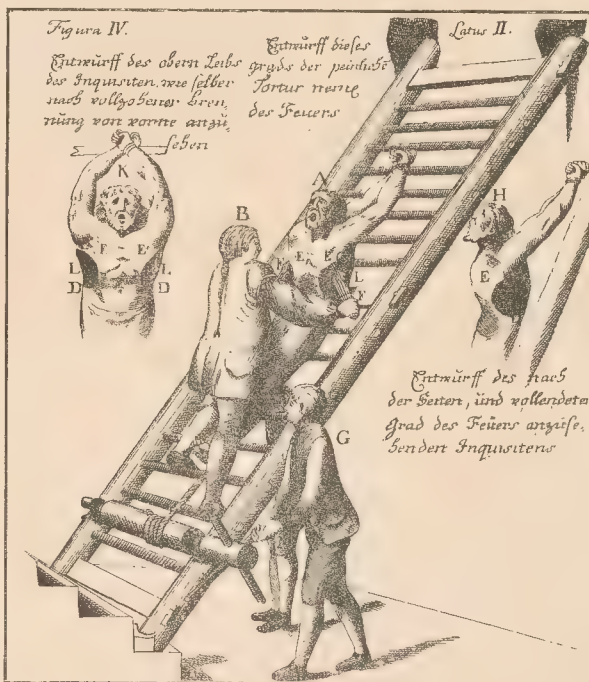 Figura IV.
Latus II.
Entwurff des obern Leibs
des Inquisiten, wie selber
nach vollzohener bren,
nung von vorne anzu,
sehen
Entwurff dieses
grads der peinliche
Tortur neme
des Feuers
K
F E
L L
D D
A
B
E E
L
F
H
E
G
Entwurff des nach
der Seiten, und vollendeten
Grad des Feuers anzuse,
henden Inquisitens